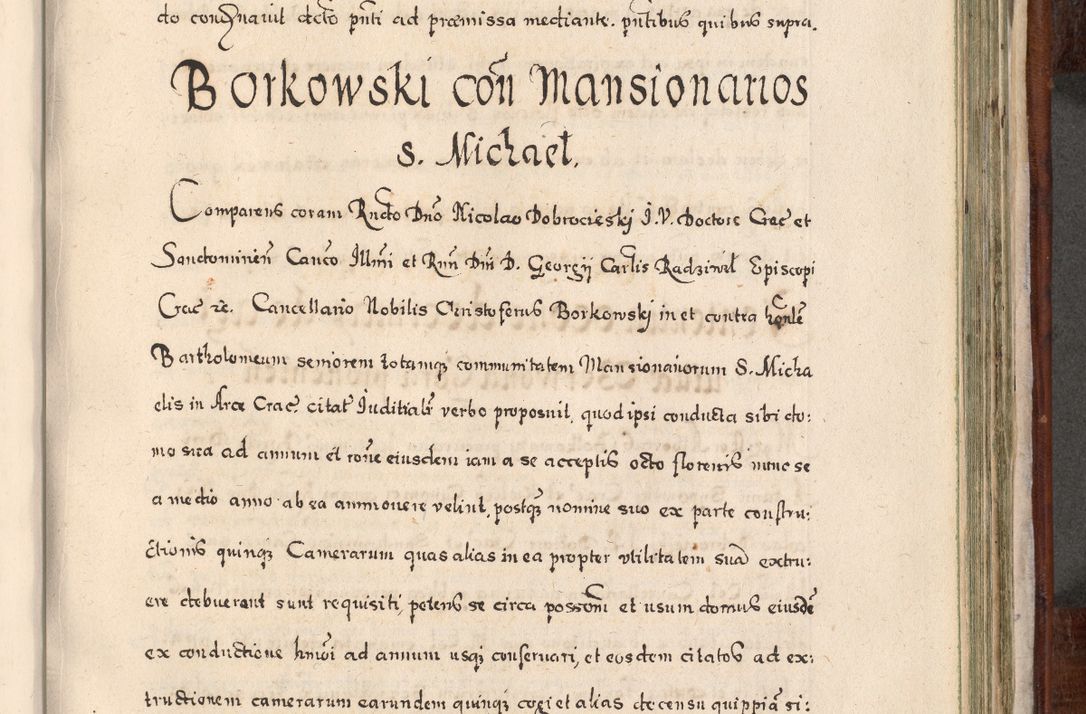 do consignavit dicto pnti ad præmissa mediante. pntibus quibus supra.
Borkowski con Mansionarios
S. Michael.
Comparens coram Rndo Dno Nicolao Dobrocieski J.V. Doctore Crac et
Sandomirien Canco Illmi et Rmi Dni D. Georgij Carlis Radziwil Episcopi
Crac etc. Cancellario Nobilis Christoferus Borkowski in et contra honle
Bartholomeum seniorem totamq communitatem Mansionariorum S. Micha
elis in Arce Crac. citat Iuditialr verbo proposuit, quod ipsi conducta sibi do:
mo sua ad annum et rone eiusdem iam a se acceptis octo florenis nunc se
a medio anno ab ea ammovere velint, postq nomine suo ex parte constru:
ctionis quinq Camerarum quas alias in ea propter utilitatem sua extru:
ere debuerant sunt requisiti, petens se circa possom et usum domus eiusde
ex conductione hmoi ad annum usq conservari, et eosdem citatos ad ex:
tructionem camerarum earundem quinq cogi et alias decensu quippia si: